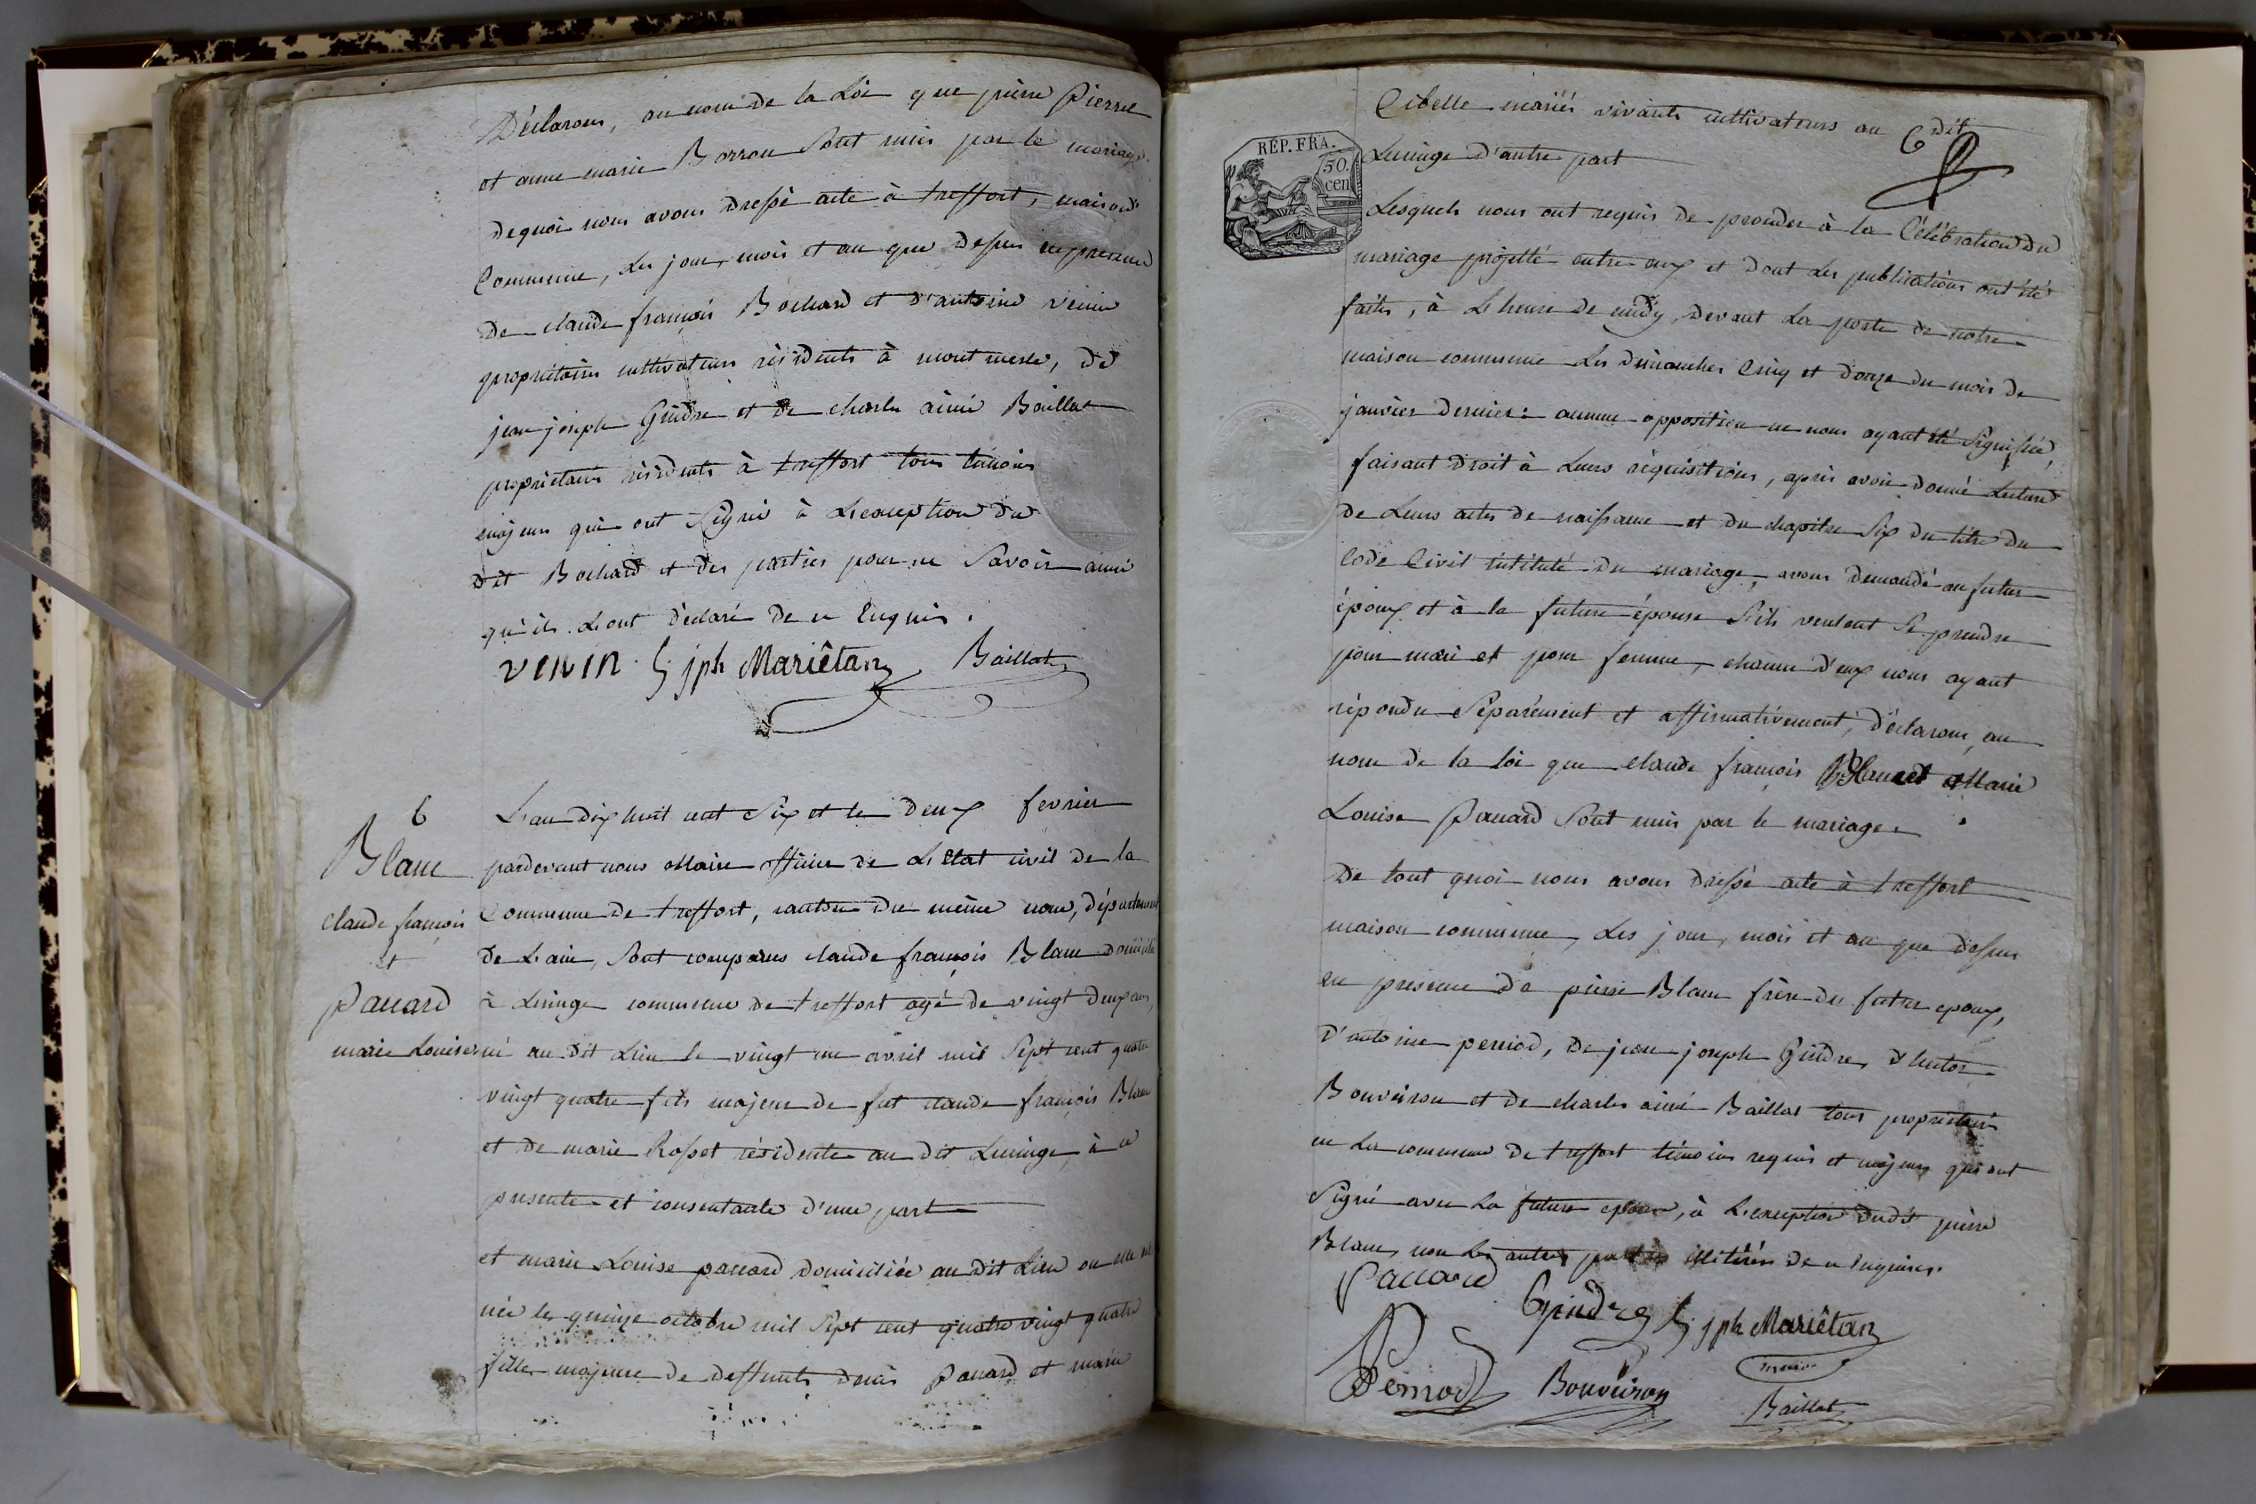 Déclarons, au nom de la Loi que pierre Pierrel
et anne marie Borron sont unis par le mariage.
dequoi nous avons dressé acte à treffort, maison
Commune, les jour, mois et an que dessus en presence
de claude françois Bochard et d'antoine venin
propriétaires cultivateurs résidents à montmerle, de
jean joseph Gindre et de charles aimé Baillat
propriétaires résidents à treffort tous témoins
majeurs qui ont signé à L'exception du
dit Bochard et des parties pour ne Savoir ainsi
qu'ils L'ont déclaré de ce Enquis.
venin jph Mariêtan Baillat
6
Blanc
claude françois
et
Paccard
marie Louise
L'an dix huit cent Six et le deux fevrier
pardevant nous Maire officier de L'Etat civil de la
Commune de treffort, canton du même nom, département
de L'ain, Sont comparus claude françois Blanc domicilié
à Lucinge commune de treffort agé de vingt deux ans,
né au dit Lieu le vingt un avril mil Sept cent quatre
vingt quatre fils majeur de fut claude françois Blanc
et de marie Rosset résidente au dit Lucinge, à ce
presente et consentante d'une part
et marie Louise paccard domiciliée au dit Lieu ou elle est
née le quinze octobre mil Sept cent quatre vingt quatre
fille majeure de deffunts denis Paccard et marie
Cibelle mariés vivants cultivateurs au dit
6
RÉP. FRA.
50.
cen
Lucinge d'autre part
Lesquels nous ont requis de proceder à la Célébration du
mariage projetté entre eux et dont les publications ont été
faites, à L'heure de midy, devant La porte de notre
maison commune Les dimanches Cinq et douze du mois de
janvier dernier: aucune opposition ne nous ayant été Signifiée,
faisant droit à Leurs réquisitions, après avoir donné Lecture
de Leurs actes de naissance et du chapitre Six du titre du
Code Civil intitulé du mariage, avons demandé au futur
époux et à la future épouse S'ils veulent Se prendre
pour mari et pour femme, chacun d'eux nous ayant
répondu Séparément et affirmativement, déclarons, au
nom de la loi que claude françois Blanc et Marie
Louise Paccard Sont unis par le mariage.
De tout quoi nous avons dressé acte à treffort
maison commune, Les jour, mois et an que dessus
en presence de pierre Blanc frère du futur epoux,
d'antoine perriod, de jean joseph Gindre,
Bouveiron et de charles aimé Baillat tous propriétaires
en La commune de treffort témoins requis et majeurs qui ont
Signé avec La future epouse, à L'exception dudit pierre
Blanc, non les autres parties illitérés de ce Enquises.
Paccard
Gindre jph Mariêtan
maire
Perriod Bouveiron
Baillat